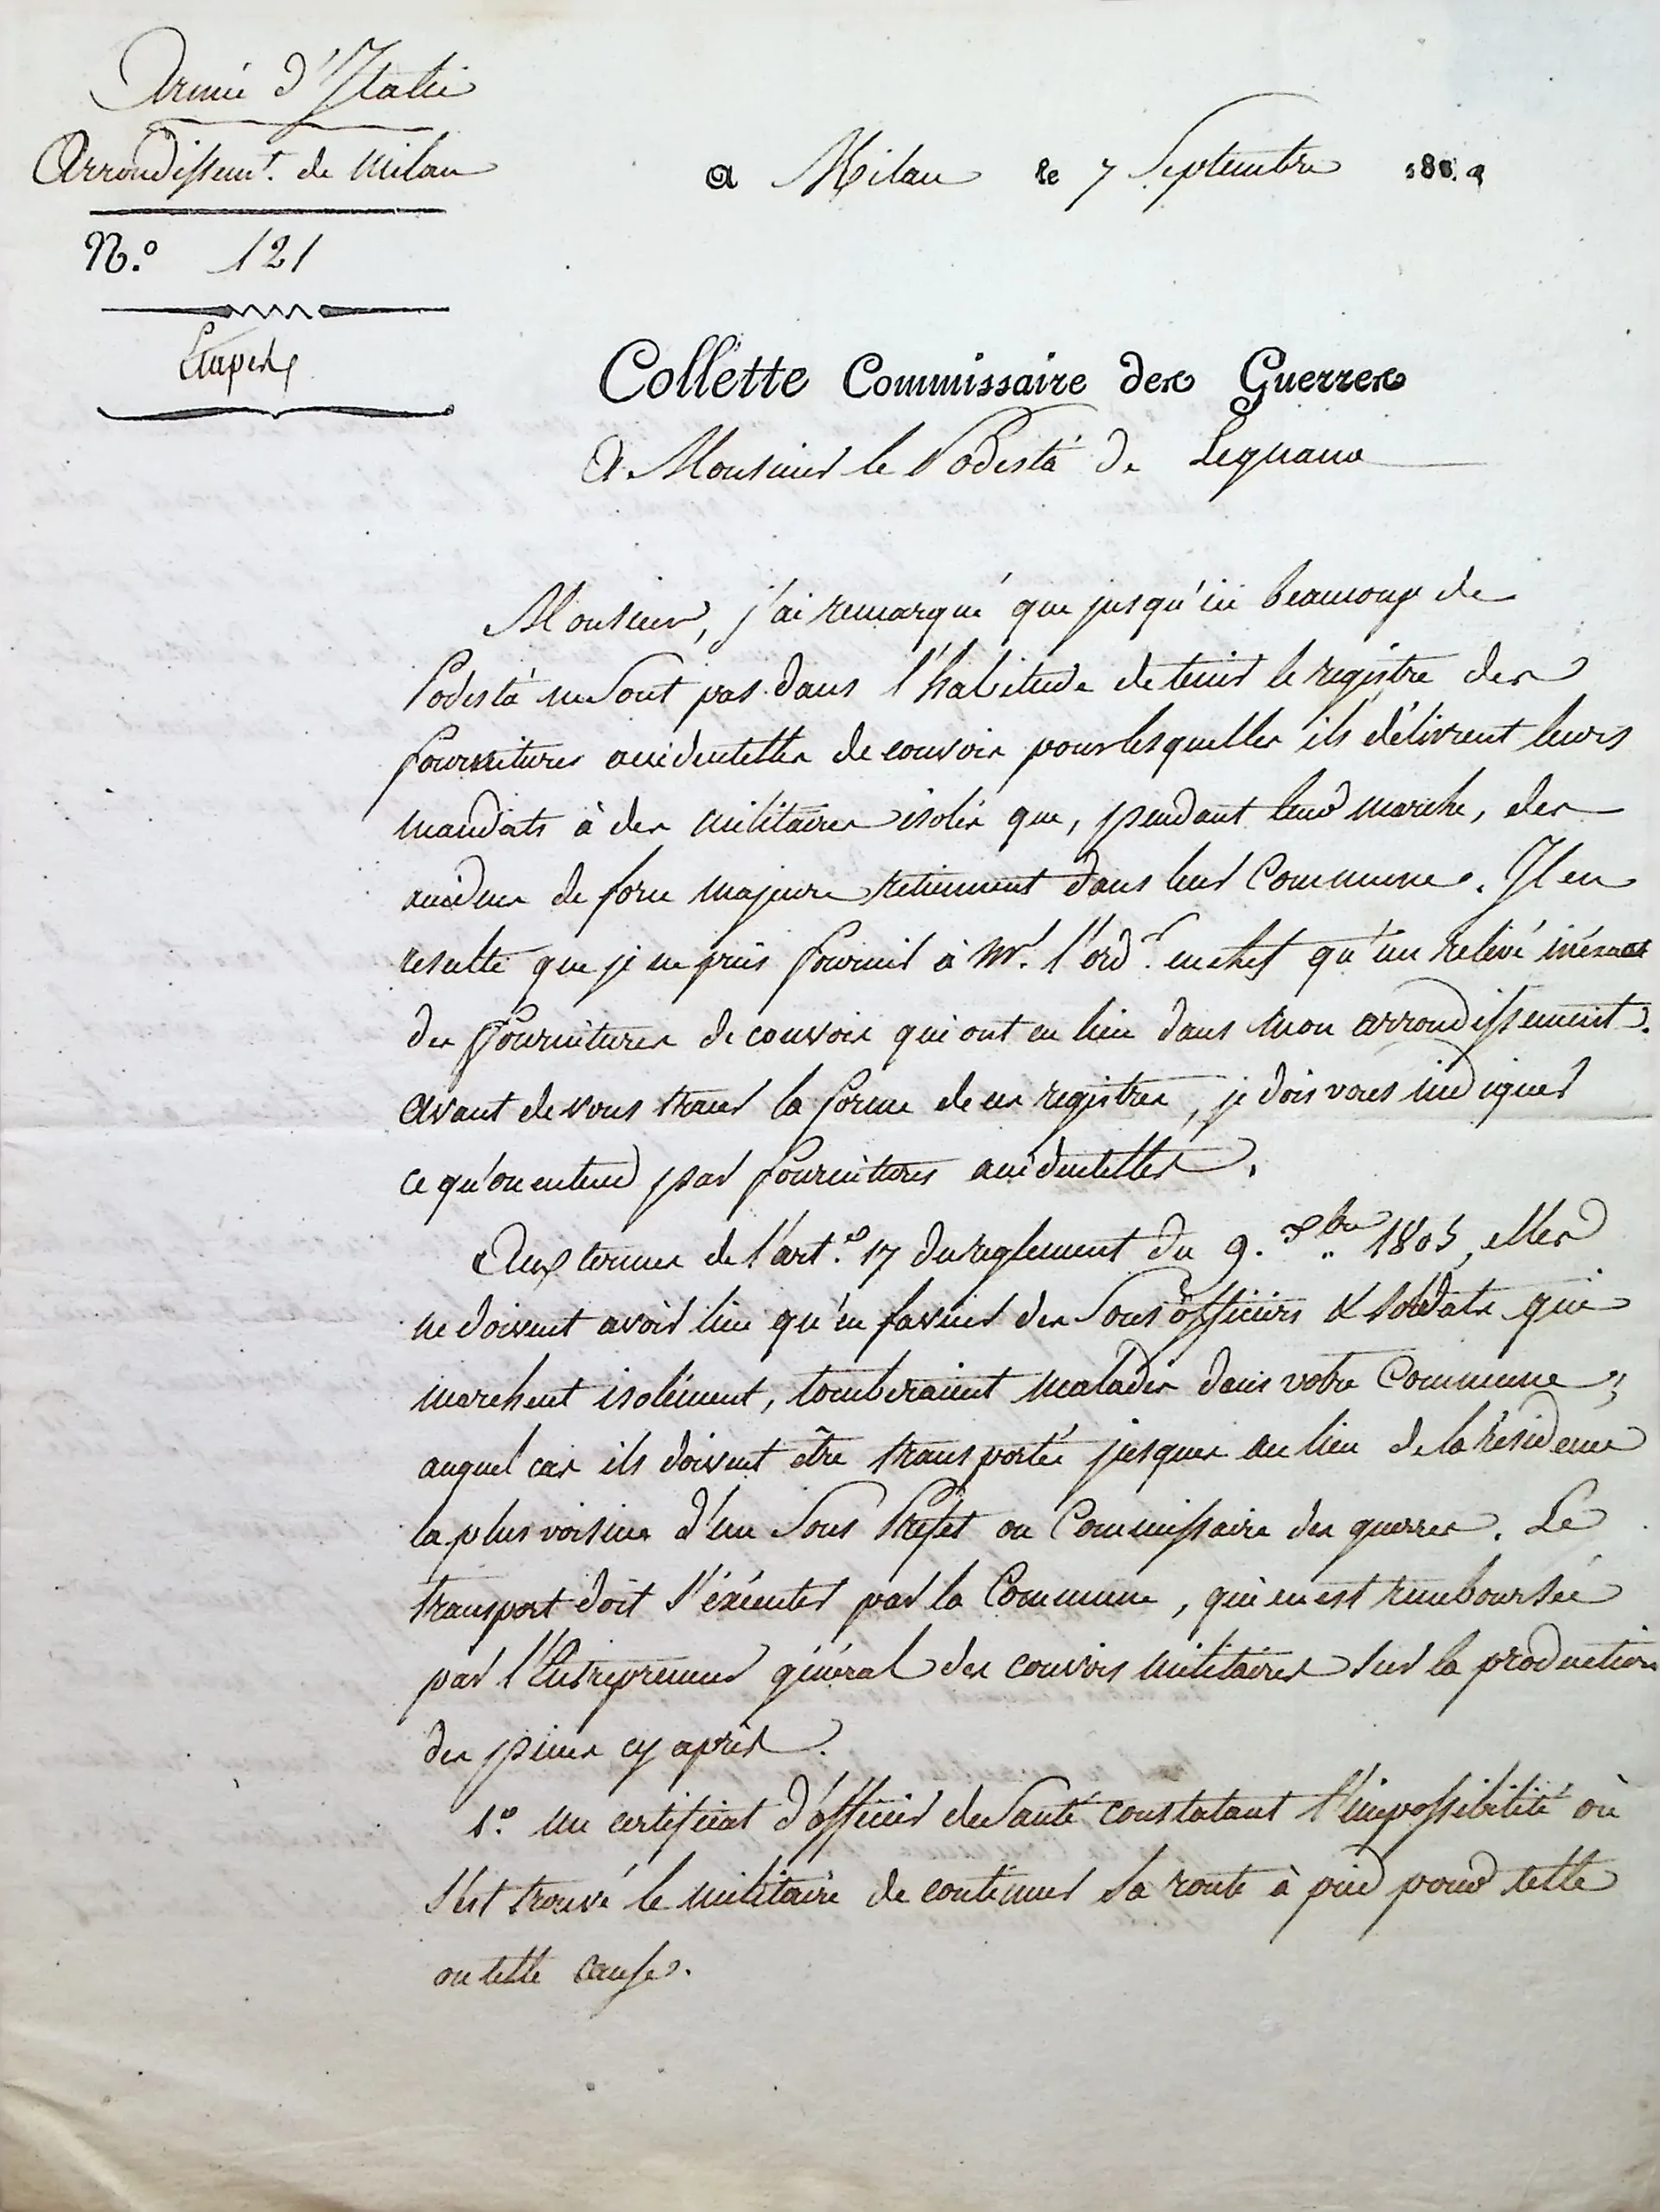 Armée d'Italie
Arrondissemt. de Milan
N.° 121
Etapes
a Milan le 7 Septembre 180.9
Collette Commissaire des Guerres
A Monsieur le Podestà de Legnano
Monsieur, j'ai remarqué que jusqu'ici beaucoup de
Podestà ne sont pas dans l'habitude de tenir le registre des
fournitures accidentelles de convois pour lesquelles ils délivrent leurs
mandats à des militaires isolés que, pendant leur marche, des
accidens de force majeure retiennent dans leur Commune. Il en
resulte que je ne puis fournir à Mr. l'ordr. en chef qu'un relevé inéxact
des fournitures de convois qui ont eu lieu dans mon arrondissement.
Avant de vous tracer la forme de ces registres, je dois vous indiquer
ce qu'on entend par fournitures accidentelles.
Aux termes de l'art.e 17 du reglement du 9. Xbre 1805, elles
ne doivent avoir lieu qu'en faveur des Sous officiers & soldats qui
marchent isolément, tomberaient malades dans votre Commune;
auquel cas ils doivent être transportés jusques au lieu de la résidence
la plus voisine d'un Sous Préfet ou Commissaire des guerres. Le
transport doit s'éxécuter par la Commune, qui en est remboursée
par l'Entrepreneur général des convois militaires sur la production
des pieces cy après.
1.° un certificat d'officier de Santé constatant l'impossibilité où
s'est trouvé le militaire de continuer sa route à pied pour telle
ou telle cause.